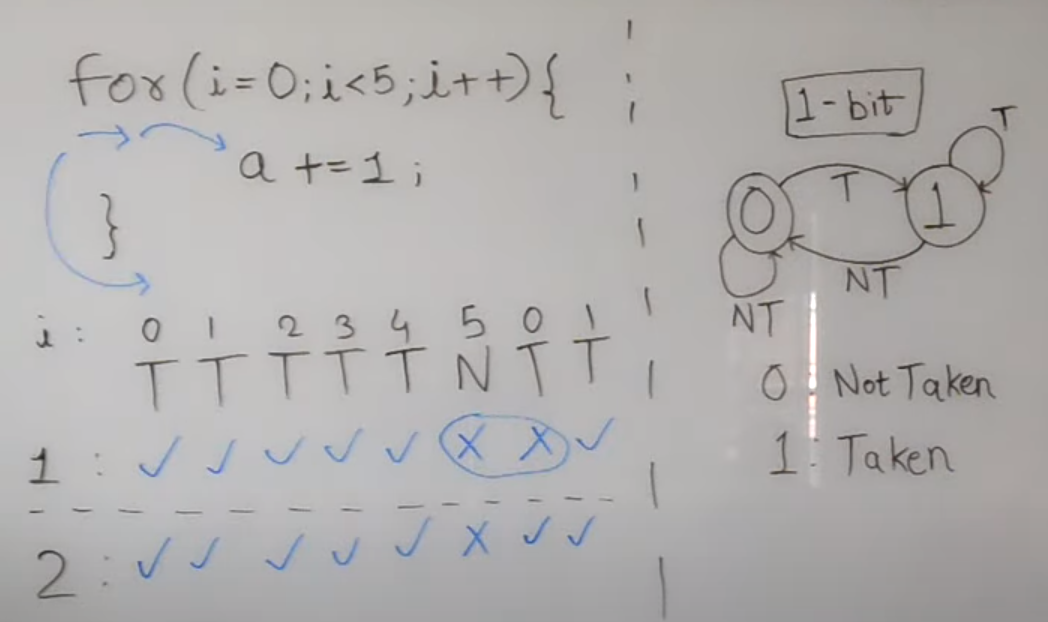 for(i=0;i<5;i++){
a +=1;
}
i: 0 1 2 3 4 5 0 1
T T T T T N T T
1: ✓ ✓ ✓ ✓ ✓ X X ✓
2: ✓ ✓ ✓ ✓ ✓ X ✓ ✓
1-bit
T
0 T 1
NT
NT
0: Not Taken
1: Taken